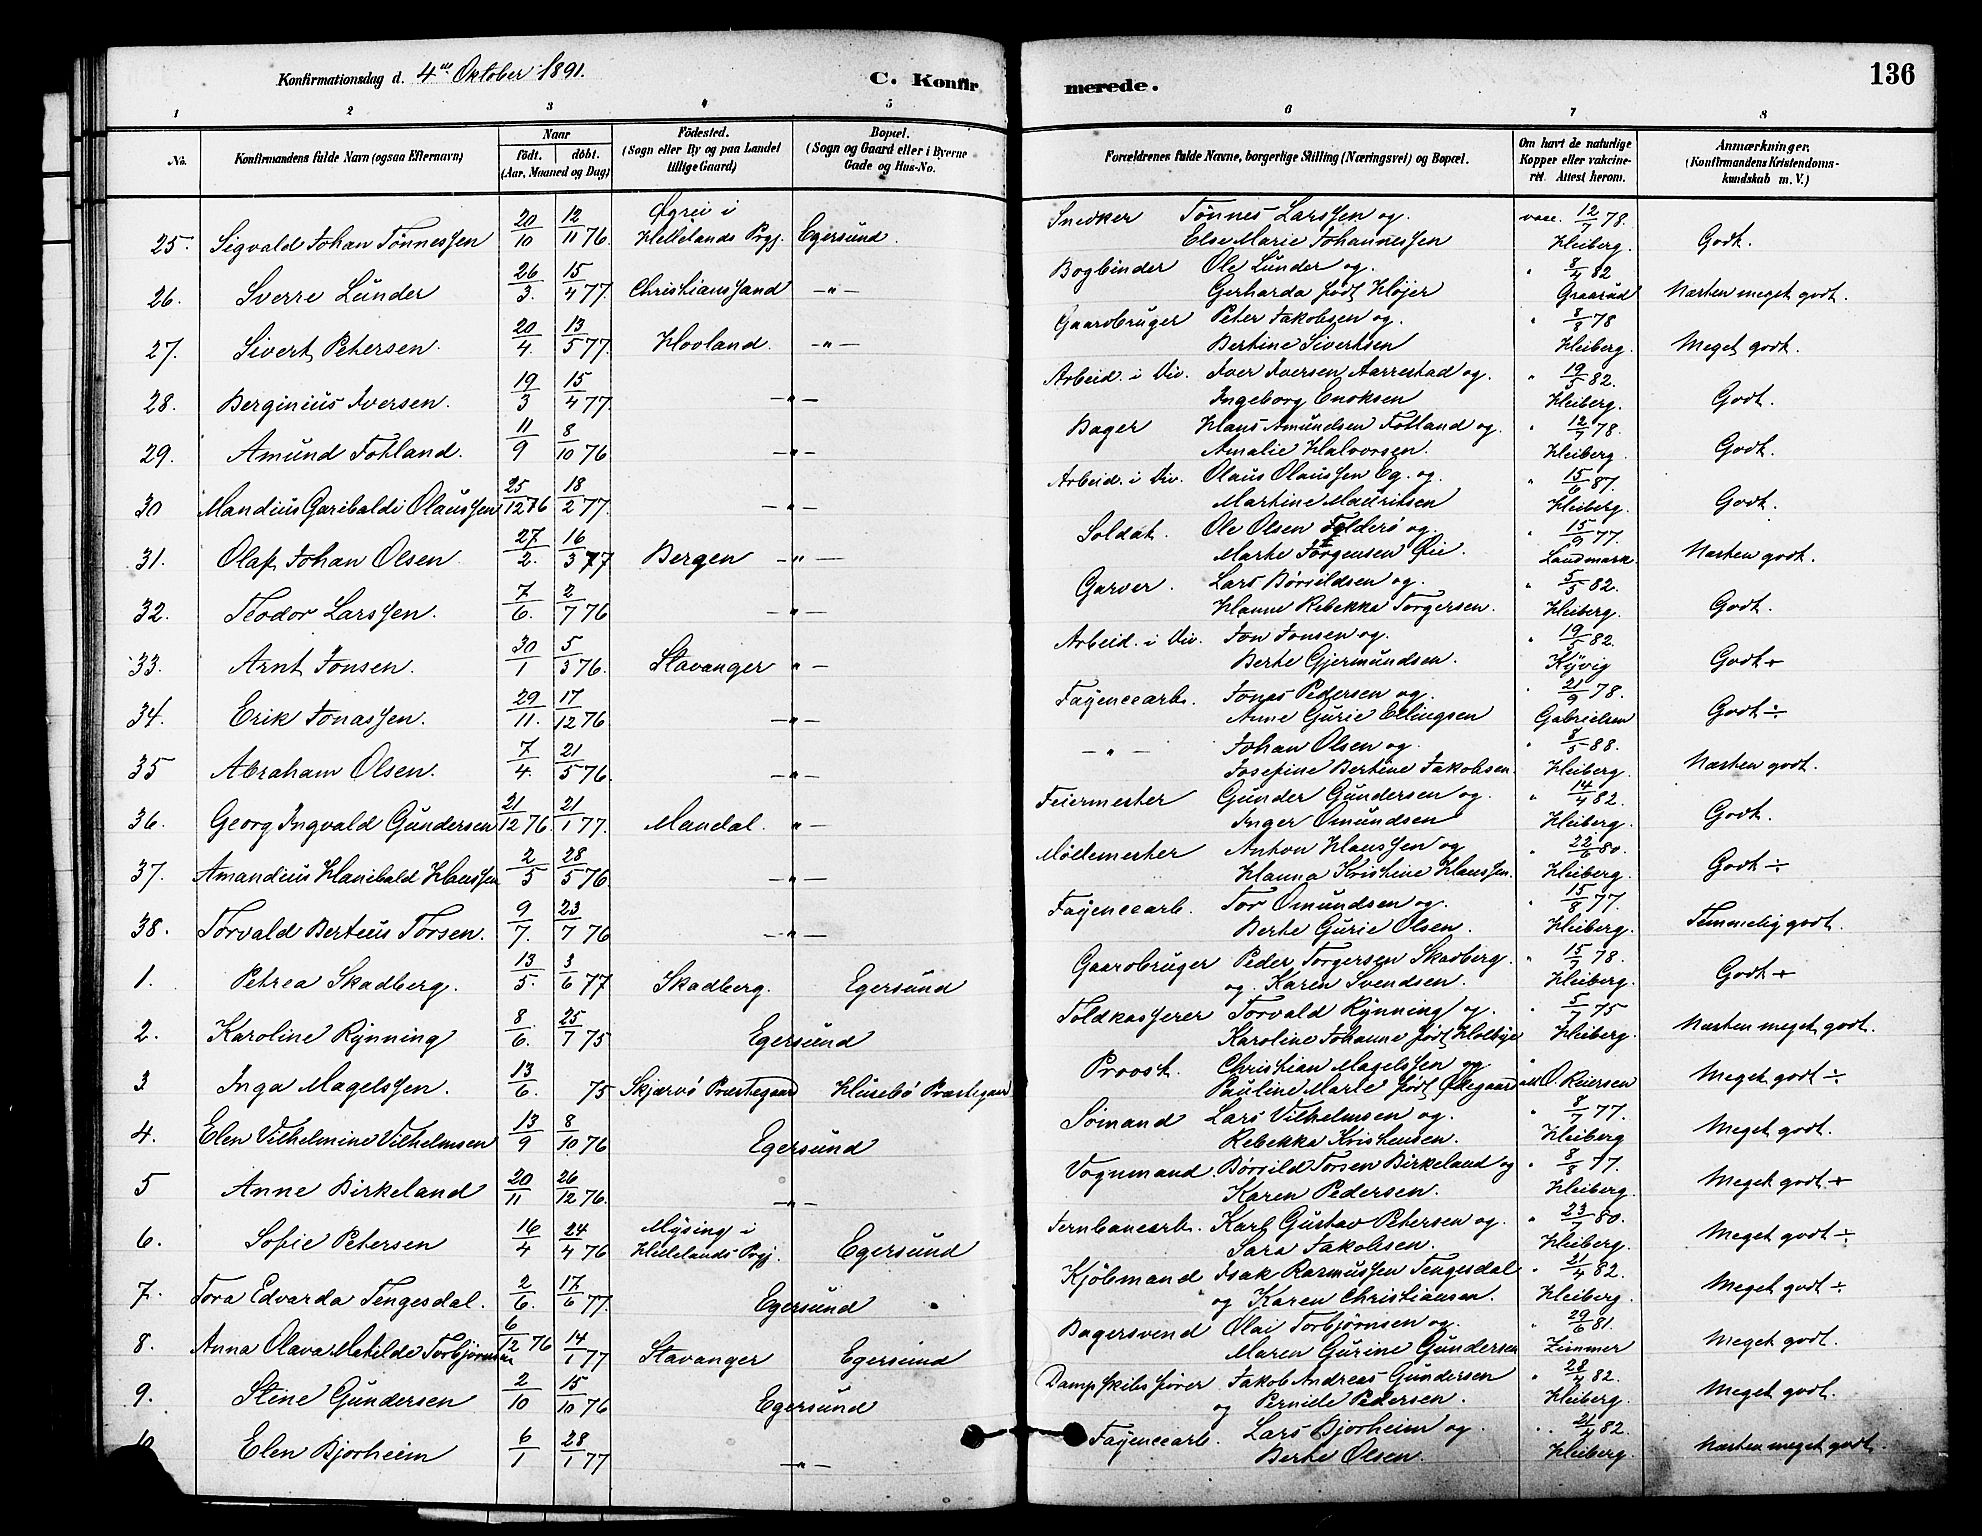 Konfirmationsdag d. 4de Oktober 1891.
C. Konfirmerede.
136
1 2 3 4 5 6 7 8
No. Konfirmandens fulde Navn (ogsaa Efternavn) Naar født. døbt. (Aar, Maaned og Dag) Fødested. (Sogn eller By og paa Landet tillige Gaard) Bopæl. (Sogn og Gaard eller i Byerne Gade og Hus-No. Forældrenes fulde Navne, borgerlige Stilling (Næringsvei) og Bopæl. Om havt de naturlige Kopper eller vakcineret. Attest herom. Anmærkninger. (Konfirmandens Kristendomskundskab m. V.)
25. Sigvald Johan Tønnessen 20/10 12/11 76 Øgrei i Hellelands Prgj. Egersund. Snedker Tønnes Larssen og Else Marie Johannessen vacc. 12/7 78. Heiberg. Godt.
26. Sverre Lunder 26/3. 15/4 77. Christianssand -"- Bogbinder Ole Lunder og Gerharda født Højer " 8/4 82 Graarud Næsten meget godt.
27. Sivert Petersen. 20/4. 13/5 77. Hovland. -"- Gaardbruger Peter Jakobsen og Bertine Sivertsen " 8/8 78 Heiberg. Meget godt.
28. Berginius Iversen. 19/3 15/4 77. -"- Arbeid. i Div. Iver Iversen Aarrestad og Ingeborg Enoksen " 19/5 82. Heiberg. Godt.
29. Amund Fotland. 11/9 8/10 76 -"- Bager Hans Amundsen Fotland og Amalie Halvorsen. " 12/7 78. Heiberg. Godt.
30 Mandius Garibaldi Olaussen 25/12 76 18/2 77. -"- Arbeid. i Div. Olaus Olaussen Eg. og Martine Mauritsen " 15/6 87. Heiberg. Godt.
31. Olaf Johan Olsen 27/2. 16/3 77 Bergen -"- Soldat. Ole Olsen Folderö og Marte Jørgensen Øie. " 15/9 77. Landmark Næsten godt.
32. Teodor Larssen. 7/6. 2/7 76 -"- Garver. Lars Børsildsen og Hanne Rebekka Torgersen. " 5/5 82. Heiberg. Godt.
33. Arnt Jonsen. 30/1 5/3 76. Stavanger "- Arbeid. i Div. Jon Jonsen og Berte Gjermundsen. " 19/5 82. Kyvig Godt +
34. Erik Jonassen. 29/11. 17/12 76 -"- Fayencearb. Jonas Pedersen og Anne Gurie Ellingsen " 21/9 78. Gabrielsen Godt ÷
35 Abraham Olsen. 7/4. 21/5 76. -"- -"- Johan Olsen og Josefine Bertine Jakobsen. " 8/5 88. Heiberg. Næsten godt.
36. Georg Ingvald Gundersen 21/12 76. 21/1 77. Mandal. "- Feiermester Gunder Gundersen og Inger Omundsen " 14/4 82. Heiberg. Godt.
37. Amandius Hanibald Hanssen 2/5 28/5 76. -"- Møllemester Anton Hanssen og Hanna Kristine Hanssen. " 22/6 80. Heiberg. Godt ÷
38. Torvald Bertius Torsen. 9/7. 23/7 76 -"- Fayencearb. Tor Omundsen og Berte Gurie Olsen. " 15/8 77. Heiberg. Temmelig godt.
1. Petrea Skadberg. 13/5. 3/6 77 Skadberg. Egersund Gaardbruger Peder Torgersen Skadberg. og Karen Svendsen. " 15/7 78. Heiberg. Godt +
2. Karoline Rynning 8/6. 25/7 75 Egersund Toldkasserer Torvald Rynning og Karoline Johanne født Holbye " 5/7 75 Heiberg. Næsten meget godt.
3 Inga Magelssen. 13/6. 75 Skjærvö Præstegaard Husebö Præstegaard Provst. Christian Magelssen og Pauline Marie født Ødegaard " O. Reiersen Meget godt ÷
4. Elen Vilhelmine Vilhelmsen 13/9 8/10 76 Egersund Sømand Lars Vilhelmsen og Rebekka Kristensen. " 8/7 77. Heiberg Meget godt.
5 Anne Birkeland 20/11 26/12 76. -"- Vognmand. Børsild Torsen Birkeland og Karen Pedersen. " 8/8 77. Heiberg. Meget godt +
6. Sofie Petersen 16/4 24/4 76 Mysing i Hellelands Prgj. Egersund Jernbanearb. Karl Gustav Petersen og Sara Jakobsen. " 23/7 80. Heiberg. Meget godt ÷
7. Tora Edvarda Tengesdal. 2/6. 17/6 77. Egersund Kjøbmand Isak Rasmussen Tengesdal og Karen Christiansen. " 21/4 82. Heiberg. Meget godt ÷
8. Anna Olava Matilde Torbjørnsen 6/12 76 14/1 77 Stavanger Egersund Bagersvend Olai Torbjørnsen og Maren Gurine Gundersen " 29/6 81. Zimmer Meget godt.
9. Stine Gundersen 2/10 15/10 76 Egersund Dampskibsfører Jakob Andreas Gundersen og Pernille Pedersen. " 28/4 82. Heiberg. Meget godt.
10 Elen Bjorheim 6/1 28/1 77 -"- Fayencearb. Lars Bjorheim og Berte Olsen. " 21/4 82 Heiberg. Næsten meget godt.